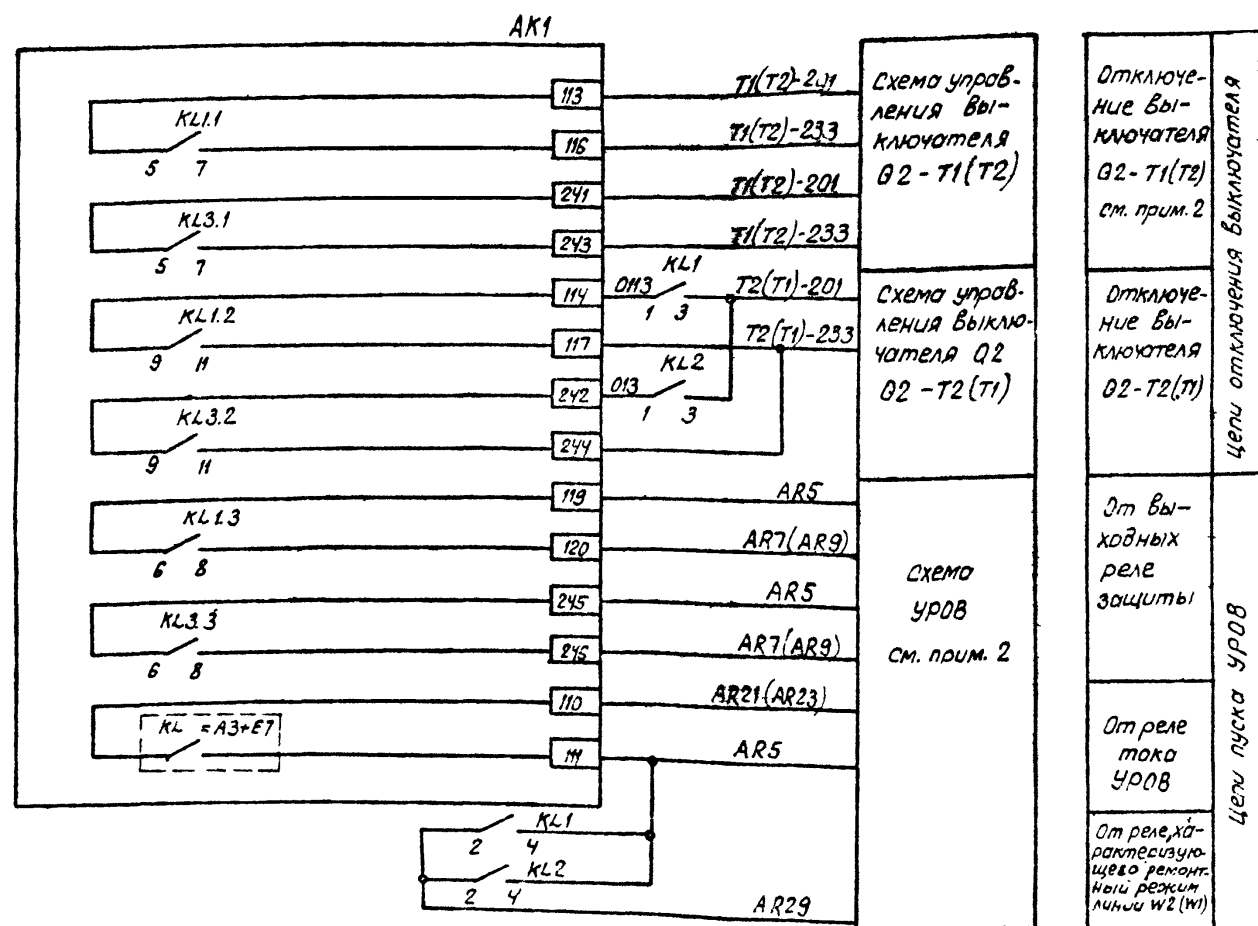 АК1
113
KL1.1
5 7
116
241
KL3.1
5 7
243
114
KL1.2
9 11
117
242
KL3.2
9 11
244
119
KL1.3
6 8
120
245
KL3.3
6 8
246
110
KL =A3+E7
111
T1(T2)-201
T1(T2)-233
T1(T2)-201
T1(T2)-233
0113
KL1
1 3
T2(T1)-201
T2(T1)-233
013
KL2
1 3
AR5
AR7(AR9)
AR5
AR7(AR9)
AR21(AR23)
AR5
KL1
2 4
KL2
2 4
AR29
Схема управ-
ления вы-
ключателя
Q2-T1(T2)
Схема управ-
ления выклю-
чателя Q2
Q2-T2(T1)
Схема
УРОВ
см. прим. 2
Отключе-
ние вы-
ключателя
Q2-T1(T2)
см. прим. 2
Отключе-
ние вы-
ключателя
Q2-T2(T1)
От вы-
ходных
реле
защиты
От реле
тока
УРОВ
От реле, ха-
рактеризую-
щего ремонт-
ный режим
линии W2(W1)
Цепи отключения выключателя
Цепи пуска УРОВ